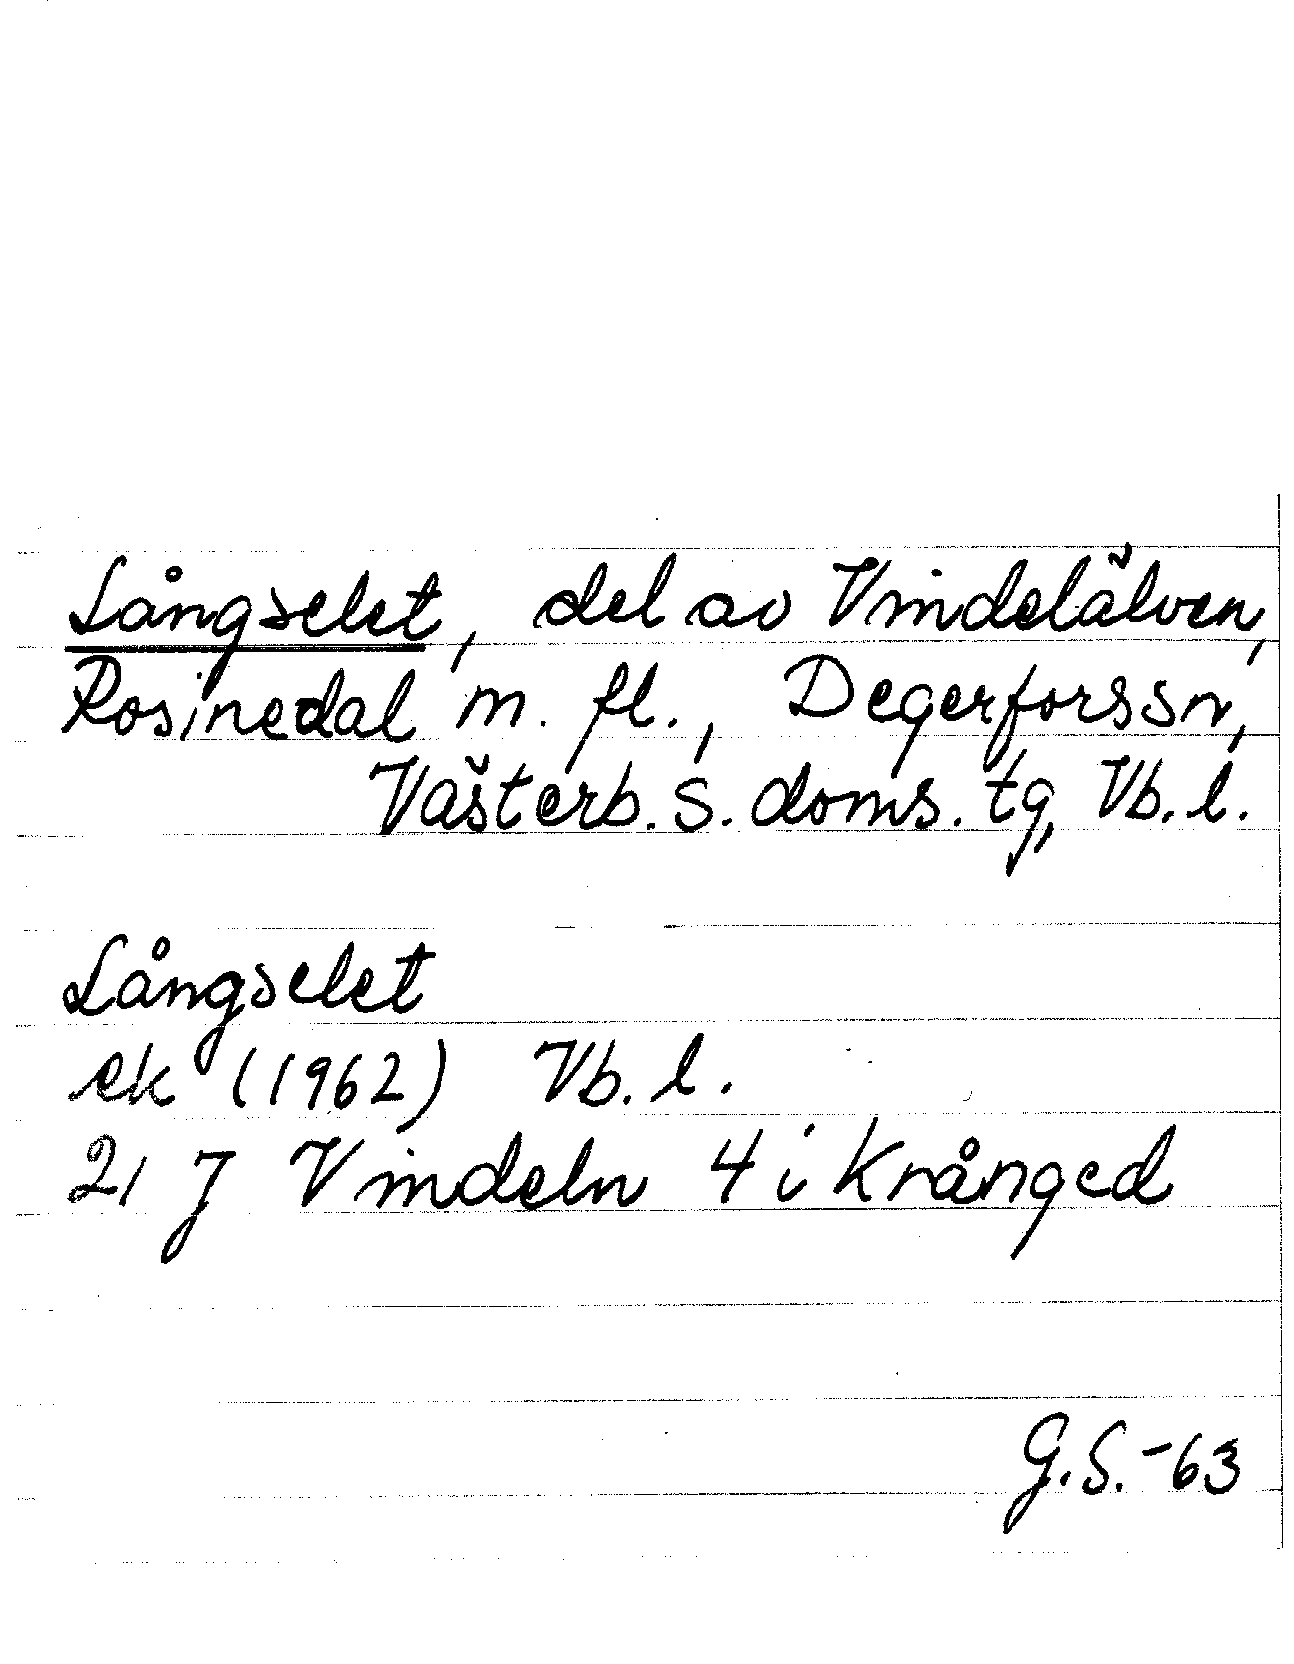 Långselet, del av Vindelälven,
Rosinedal m. fl., Degerforssn,
Västerb. s. doms. tg, Vb. l.
Långselet
ek (1962) Vb. l.
21 J Vindeln 4 i Krånged
G.S.-63